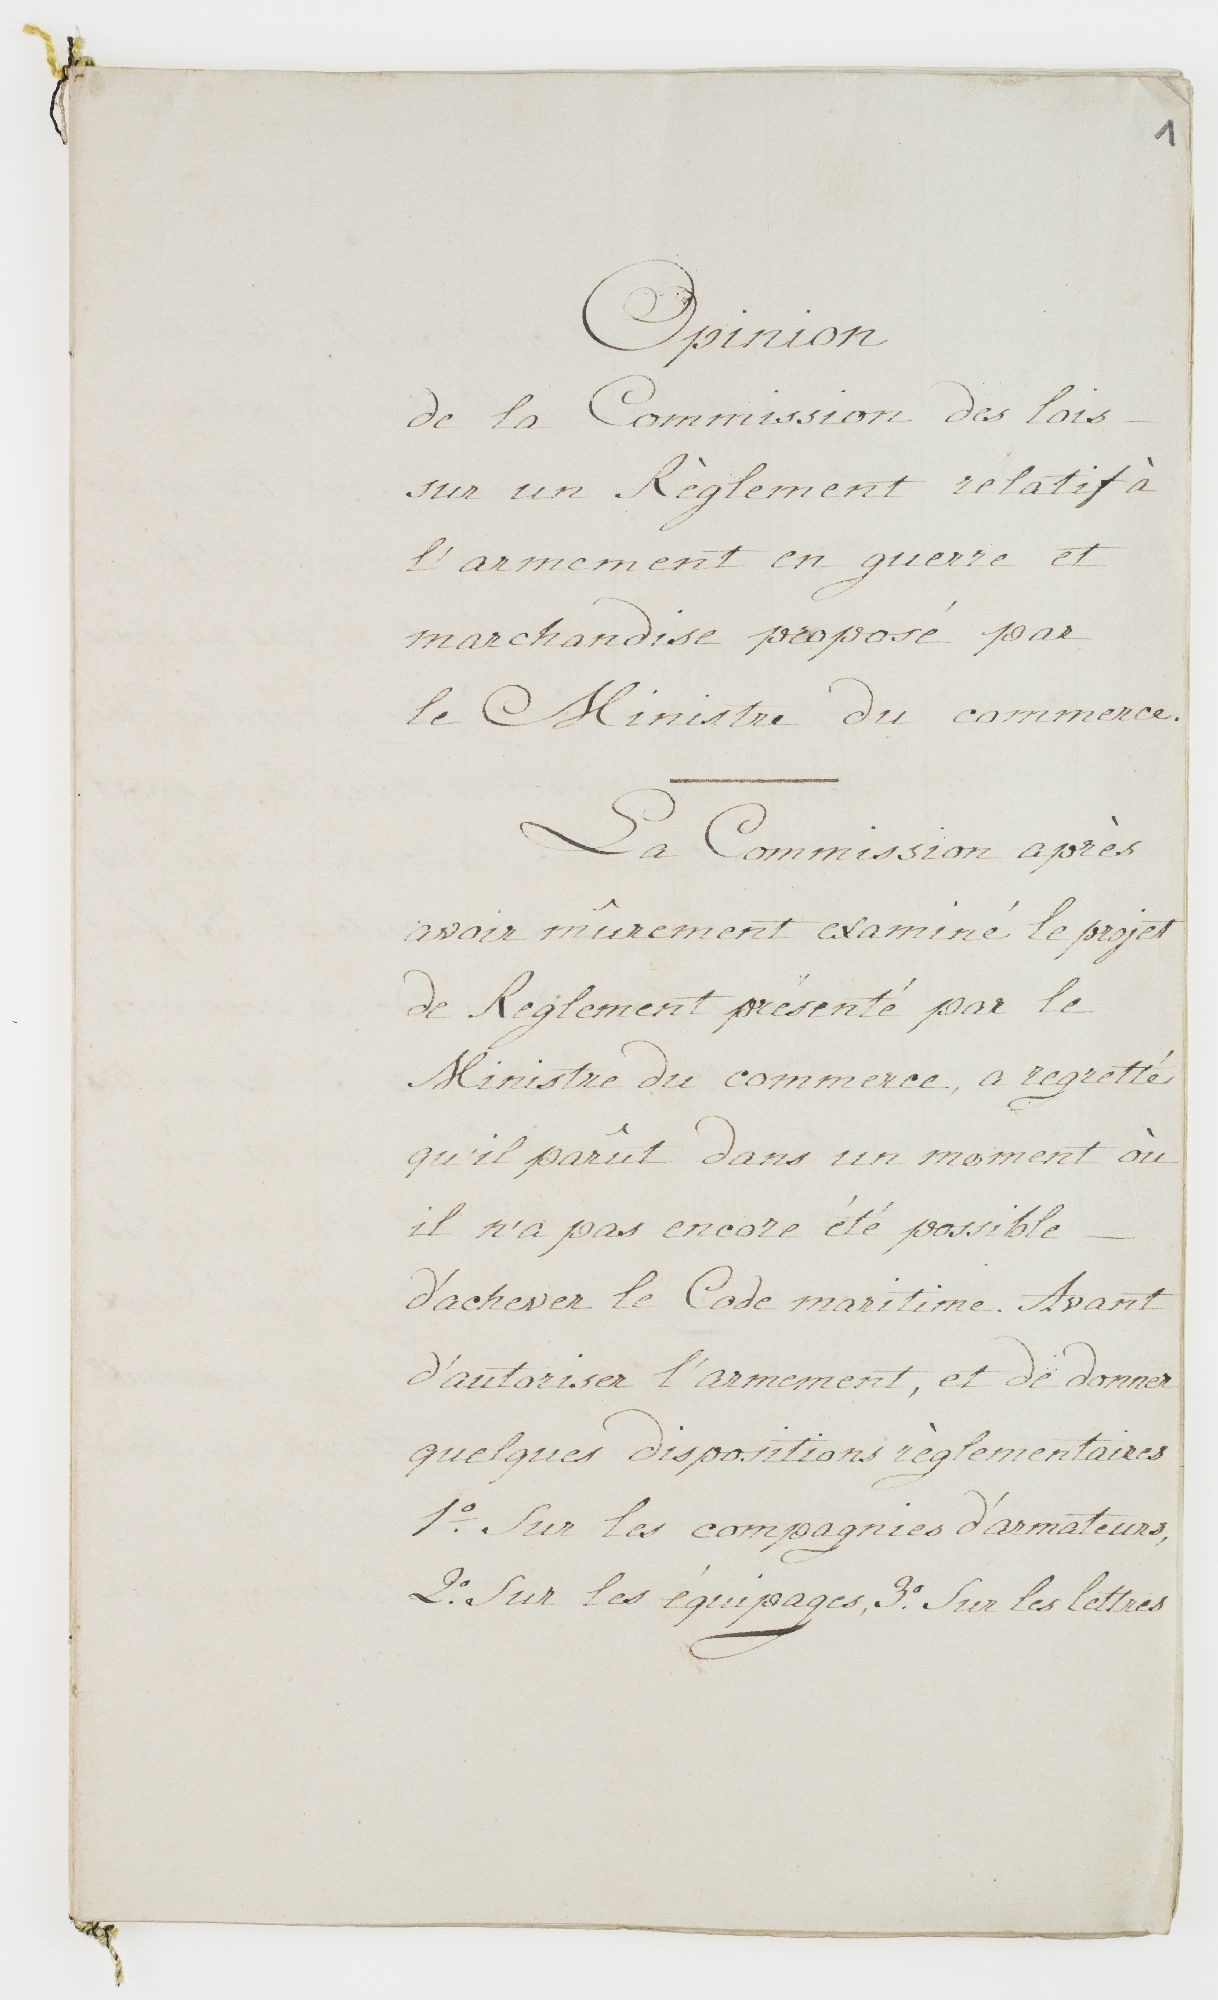 1
Opinion
de la Commission des lois —
sur un Règlement relatif à
l'armement en guerre et
marchandise proposé par
le Ministre du commerce.
La Commission après
avoir mûrement examiné le projet
de Reglement présenté par le
Ministre du commerce, a regretté
qu'il parût dans un moment où
il n'a pas encore été possible —
d'achever le Code maritime. Avant
d'autoriser l'armement, et de donner
quelques dispositions règlementaires
1º. Sur les compagnies d'armateurs,
2º. Sur les équipages, 3º. Sur les lettres